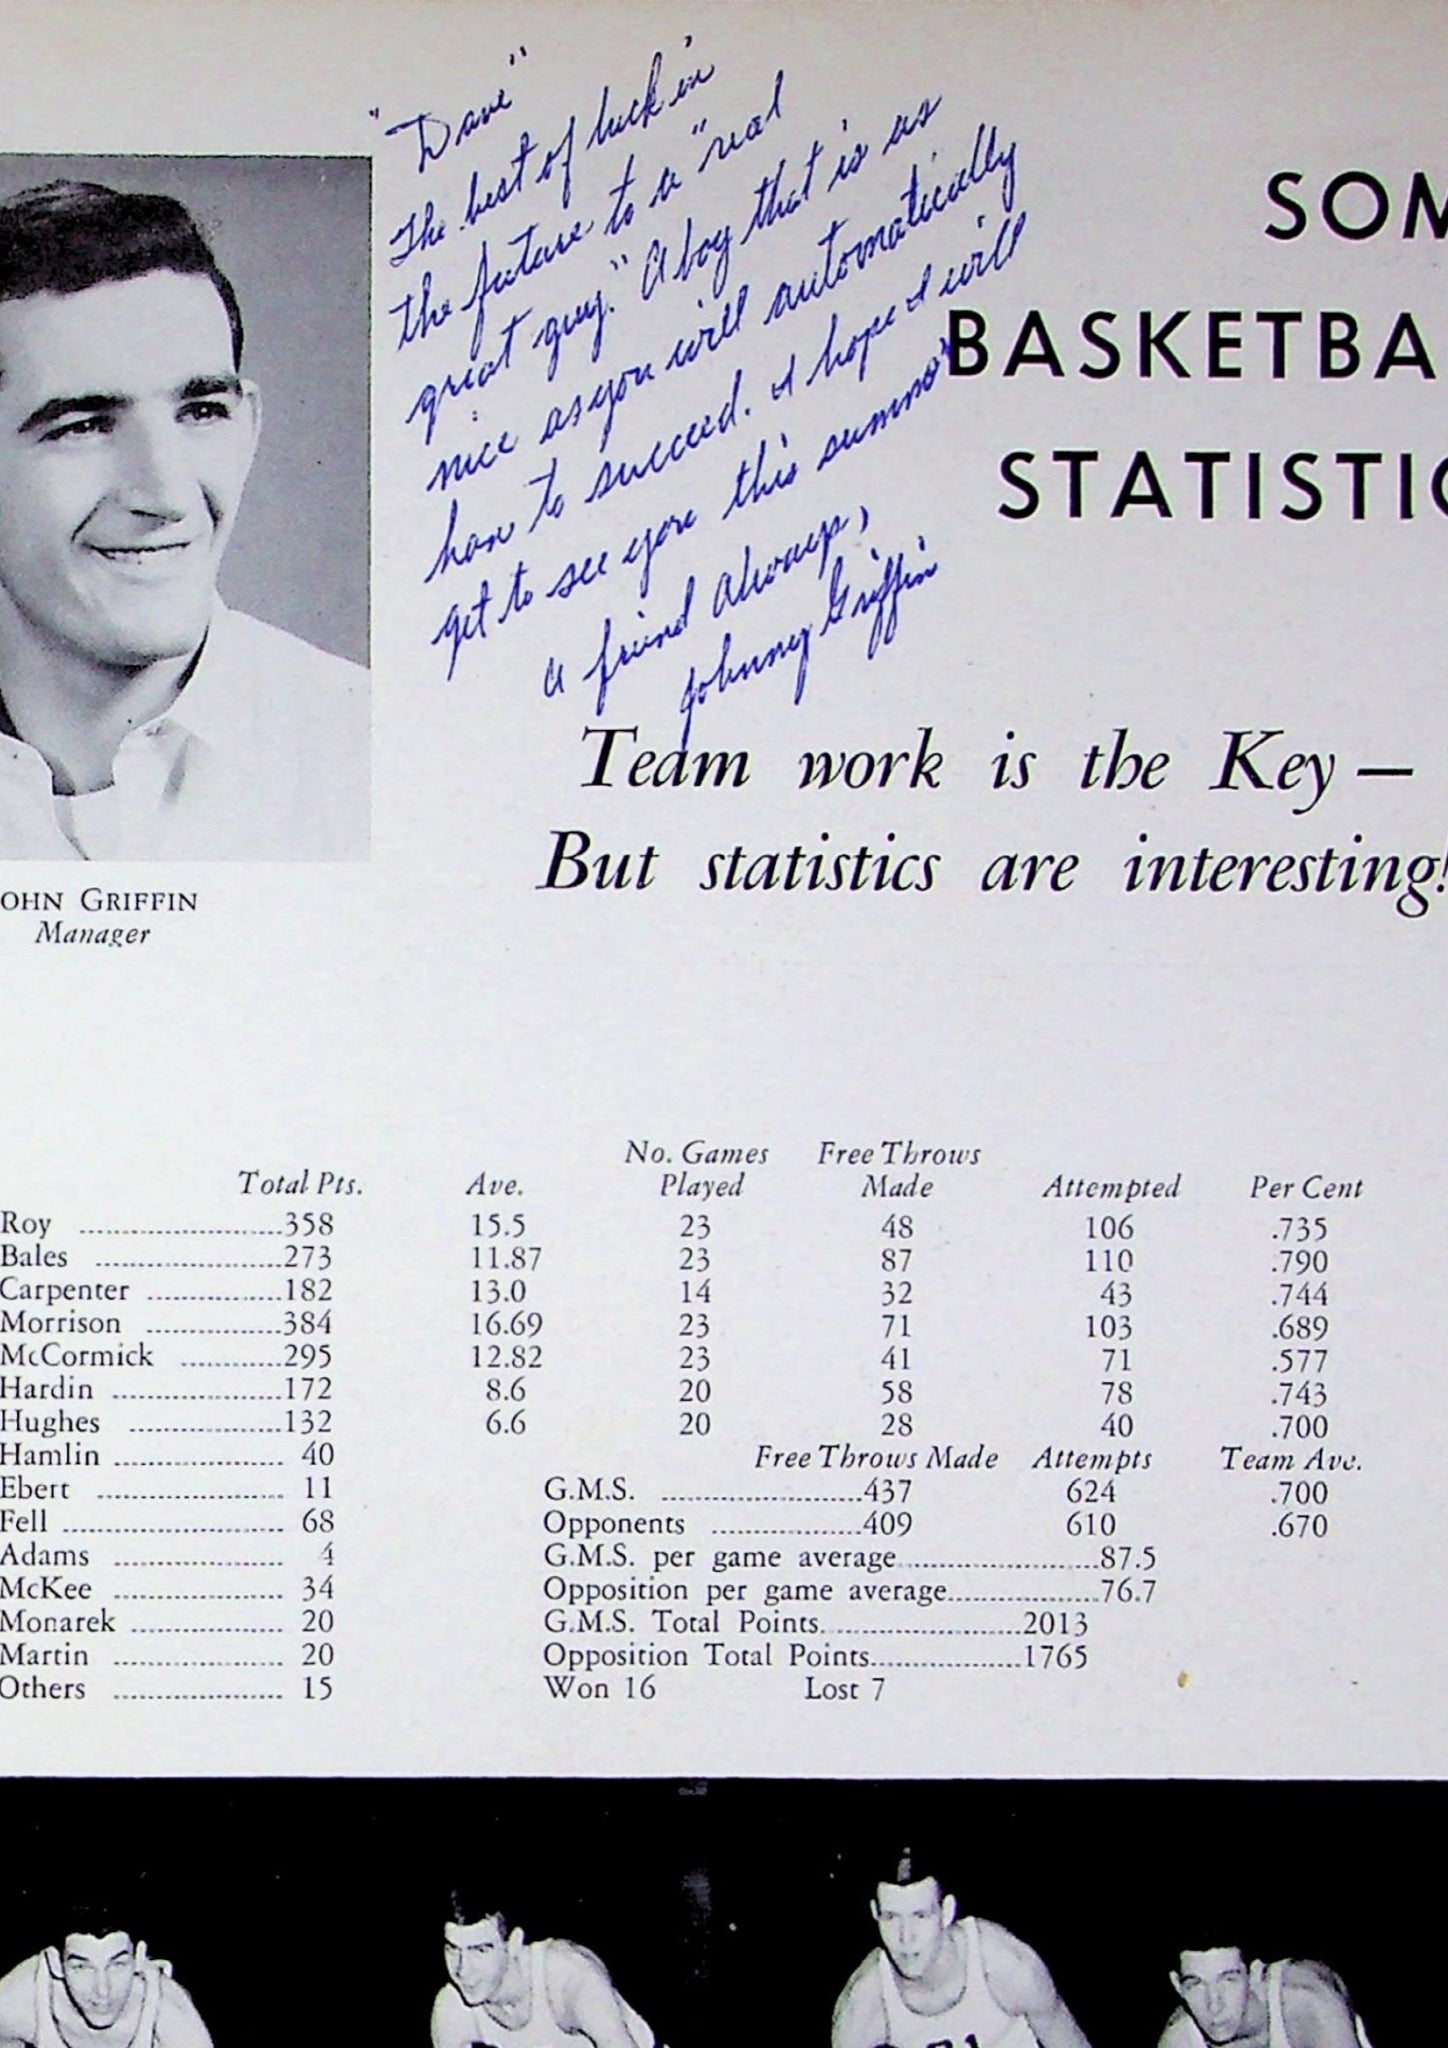 "Dave"
The best of luck in
the future to a "real
great guy." A boy that is as
nice as you will automatically
have to succeed. I hope I will
get to see you this summer
A friend Always,
Johnny Griffin
SOM
BASKETBA
STATISTIC
Team work is the Key —
But statistics are interesting!
OHN GRIFFIN
Manager
Total Pts. Ave. No. Games Played Free Throws Made Attempted Per Cent
Roy 358 15.5 23 48 106 .735
Bales 273 11.87 23 87 110 .790
Carpenter 182 13.0 14 32 43 .744
Morrison 384 16.69 23 71 103 .689
McCormick 295 12.82 23 41 71 .577
Hardin 172 8.6 20 58 78 .743
Hughes 132 6.6 20 28 40 .700
Hamlin 40 Free Throws Made Attempts Team Ave.
Ebert 11 G.M.S. 437 624 .700
Fell 68 Opponents 409 610 .670
Adams 4 G.M.S. per game average 87.5
McKee 34 Opposition per game average 76.7
Monarek 20 G.M.S. Total Points 2013
Martin 20 Opposition Total Points 1765
Others 15 Won 16 Lost 7